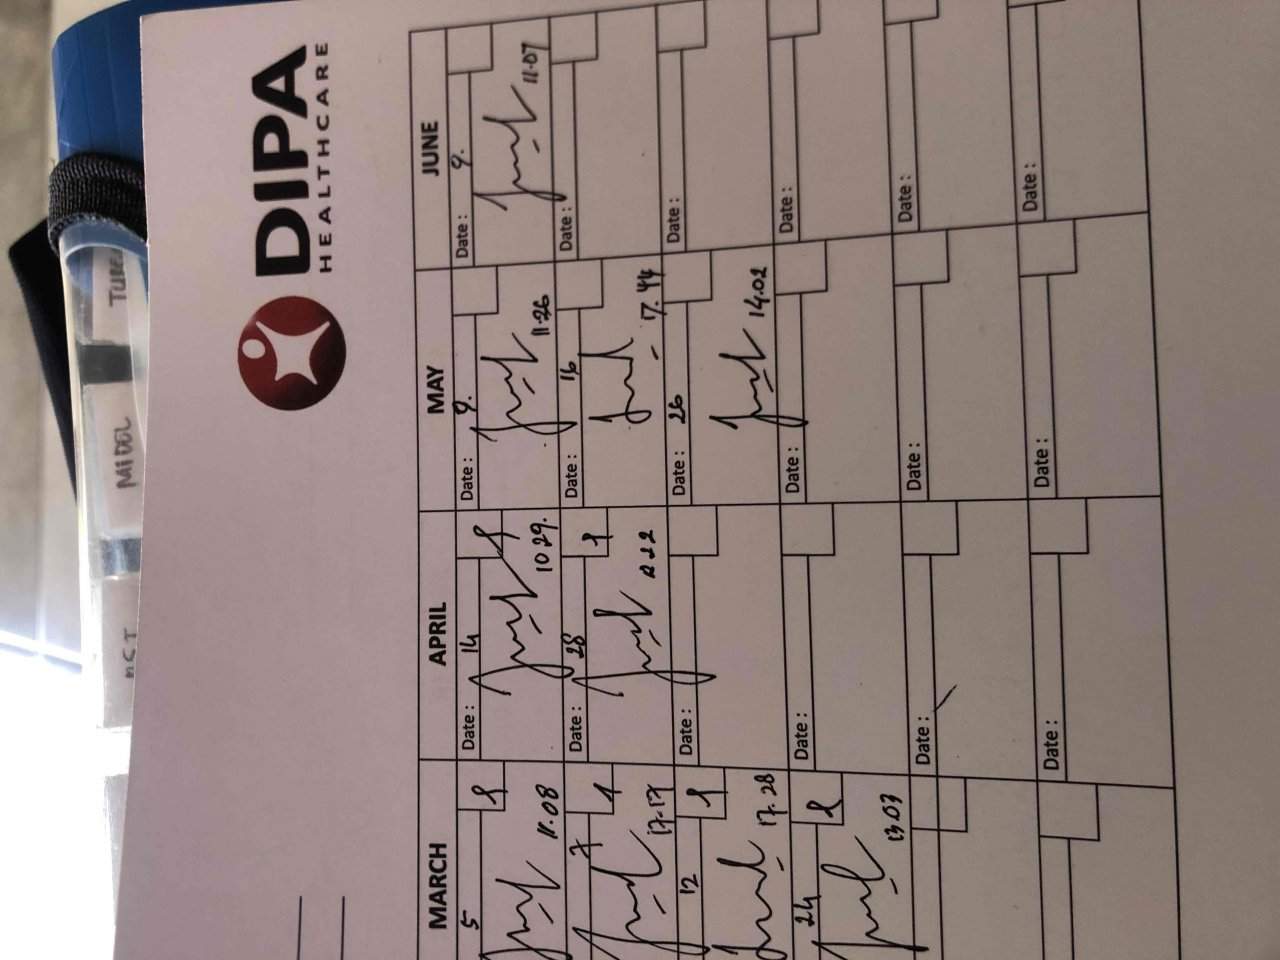 DIPA
HEALTHCARE
MARCH
5
11.08
7
17.17
12
17.28
24
13.03
APRIL
Date : 14
10 29.
Date : 28
Date :
Date :
Date :
Date :
MAY
Date : 9.
11.26
Date : 16
17.44
Date : 26
14.02
Date :
Date :
Date :
JUNE
Date : 9.
11.07
Date :
Date :
Date :
Date :
Date :
MIDDL